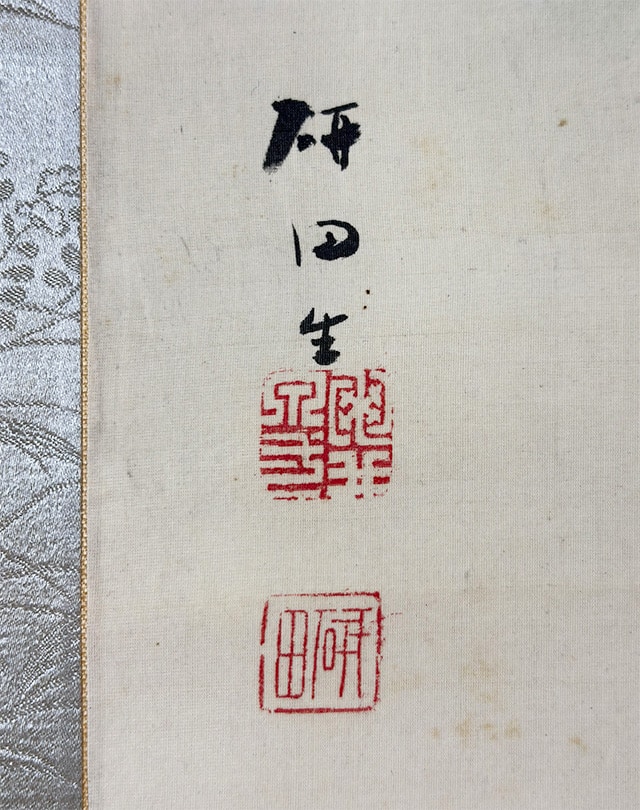 研
田
生
研田